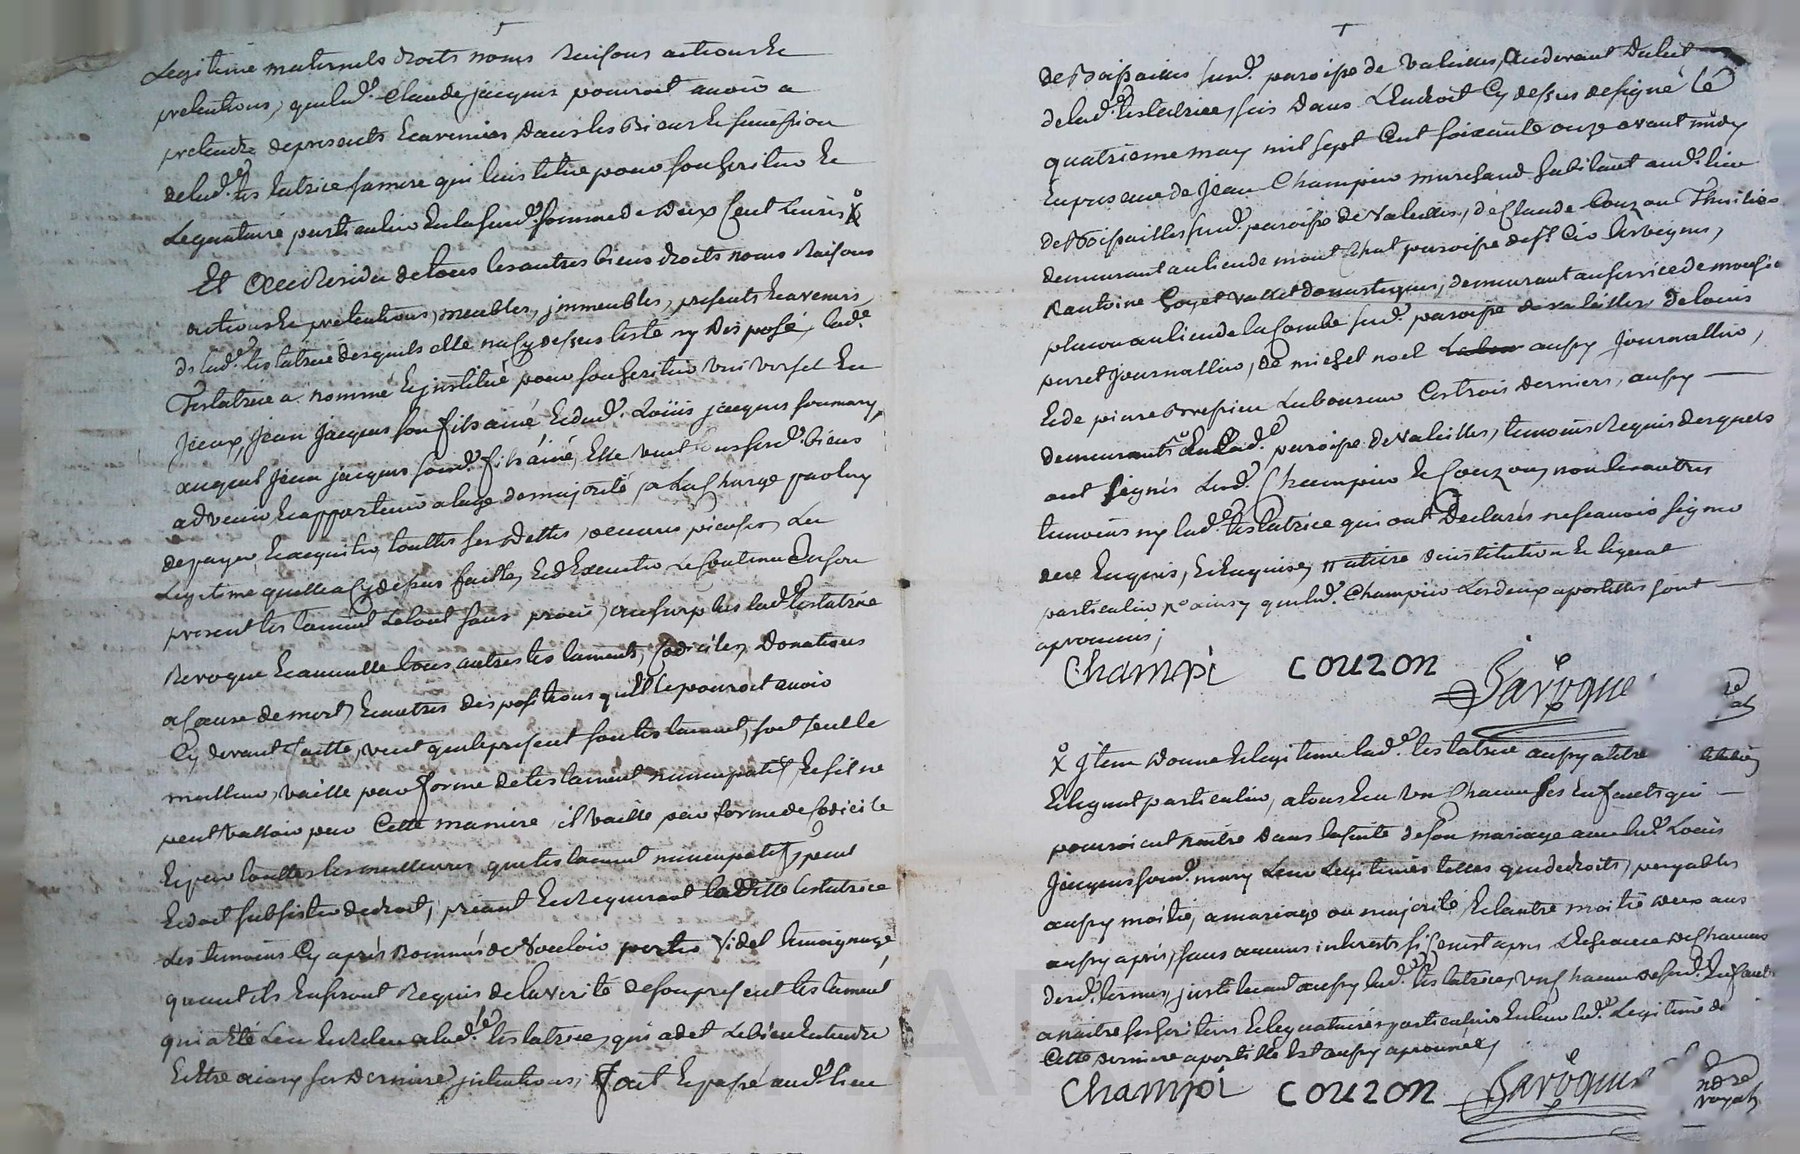 Legitime maternels droits noms Raisons actions Et
pretentions, que led. Claude jacques pouroit avoir a
pretendre de presents Et avenirs Dans les Biens Et sucession
de lad.e testatrice sa mere qui l'institue pour son heritier Et
Legataire particulier En la susd.e somme de Deux Cent Livres X
Et Au Residu de tous les autres biens droits noms Raisons
actions Et pretentions, meubles, jmmeubles, presents Et avenirs,
de lad.e testatrice desquels elle n'a Cy dessus testé ny Disposé, lad.e
Testatrice a nommé Et jnstitué pour son heritier universel En
jceux, Jean Jacques son fils ainé Et dud. Loüis jacques son mary,
auquel Jean jacques sond. fils ainé, Elle veut tous sesd. biens
advenir Et appartenir a l'age de majorité, a La Charge par luy
de payer Et acquitter touttes ses Dettes, oeuvres pieuses, Les
Legitime quelle a Cy dessus faittes, Et d'Executer Le Contenu En son
present testament Le tout sans procès, au surplus lad.e testatrice
Revoque Et annulle tous autres testaments, Codiciles, Donations
a Cause de mort, Et autres dispositions qu'Elle pouroit avoir
Cy devant faitte, veut que le present son testament, soit seul le
meilleur, vaille par forme de testament nuncupatif, Et s'il ne
peut valloir par Cette maniere, il vaille par forme de Codicile
Et par touttes les meilleures que testament nuncupatif, peut
Et doit subsister de droit, priant Et Requerant laditte testatrice
Les temoins Cy après Nommés de Vouloir porter fidel temoignage
quant ils En seront Requis de la verité de son present testament
qui a Eté Leu Et Releu a lad.e testatrice, qui a dit Le bien Entendre
Et Etre ainsy ses Dernieres jntentions, fait Et passé aud. lieu
de Boissailles susd. paroisse de Valeilles, Audevant Du lit
de lad.e testatrice, sis Dans L'Endroit Cy dessus designé Le
quatrieme may mil sept Cent soixante onze avant midy
En presence de Jean Champier marchand habitant aud. lieu
de Boissailles susd. paroisse de Valeilles, de Claude Couzon Thuilier
demeurant au lieu de mont Chat paroisse de St Cir les vignes,
d'antoine Goyet vallet domestique, demeurant au service de monsieur
au lieu de la Combe susd. paroisse de valeilles, de louis
puret Journallier, de michel noel aussy Journallier,
Et de pierre Laboureur Ces trois derniers, aussy
demeurants En lad.e paroisse de Valeilles, temoins Requis desquels
ont signés Lesd. Champier Et Couzon, non les autres
temoins ny lad.e testatrice qui ont Declarés ne scavoir signer
de ce Enquis, Et Enquise, nature d'institution Et ligeat
particulier ainsy que led. Champier Les deux apostilles sont
aprouvés;
Champi couzon Baroque
X Jtem Donne Et legitime lad.e testatrice aussy a titre
Et legat particulier, a tous Et un Chacun ses Enfants qui
pouroient naitre Dans la suite de son mariage avec led. Louis
Jacques sond. mary Leur Legitimes telles que de droit, payables
aussy moitié, a mariage ou majorité, Et l'autre moitié deux ans
aussy après, sans aucuns interests si Ce n'est après L'Echeance de Chacuns
desd. termes, jnstituant aussy lad.e testatrice, un Chacun desd. Enfants
a naitre ses heritiers Et legataires particuliers En leur lad.e Legitime
Cette derniere apostille Est aussy aprouvée,
Champi couzon Baroque